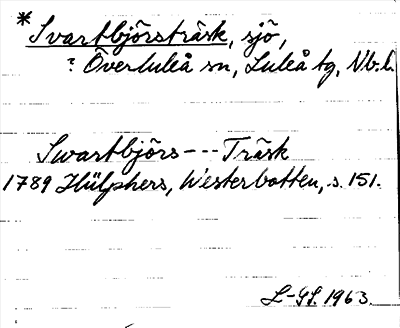 * Svartbjörsträsk, sjö,
? Överluleå sn, Luleå tg, Nb.l.
Swartbjörs --- Träsk
1789 Hülphers, Westerbotten, s. 151.
L-GS. 1963.